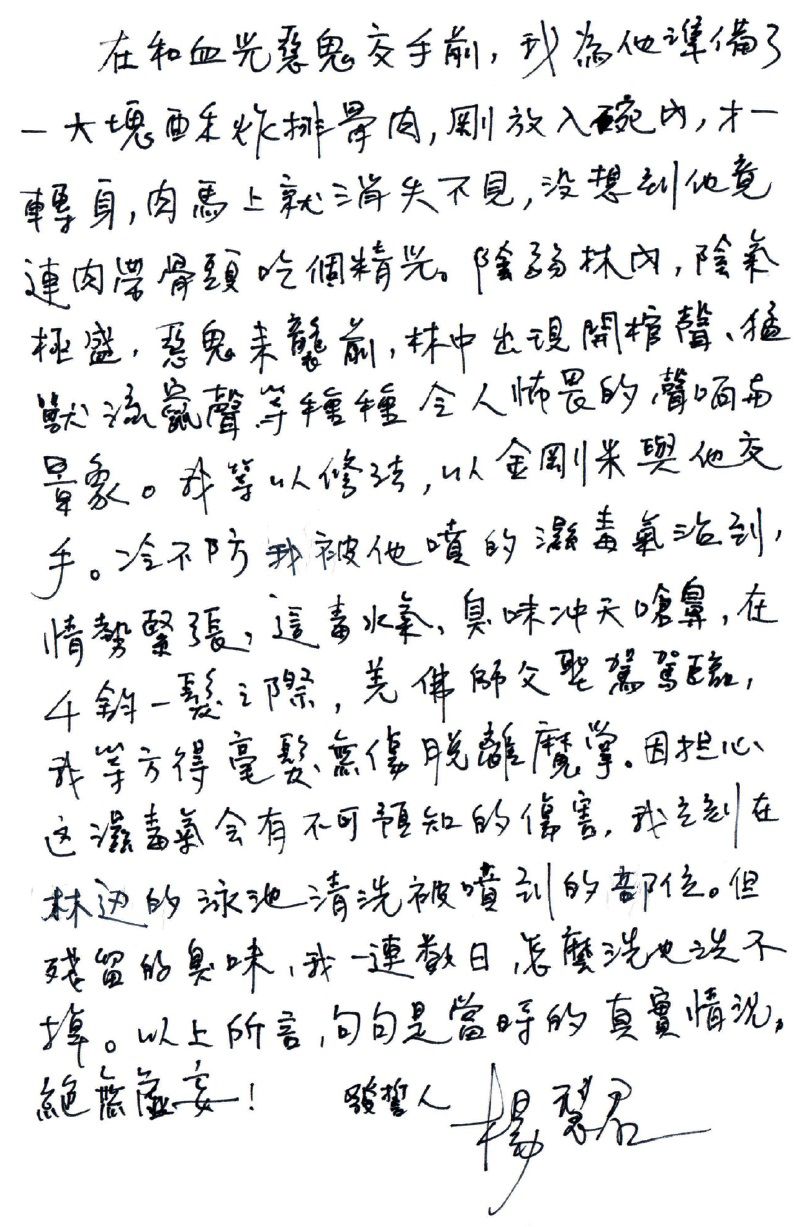 在和血光惡鬼交手前，我為他準備了
一大塊酥炸排骨肉，剛放入碗內，才一
轉身，肉馬上就消失不見，没想到他竟
連肉帶骨頭吃個精光。陰弱林內，陰氣
極盛，惡鬼未襲前，林中出現開棺聲、猛
獸流竄聲等種種令人怖畏的聲响与
景象。我等以修法，以金剛米與他交
手。冷不防我被他噴的濕毒氣沾到，
情勢緊張，這毒水氣，臭味冲天嗆鼻，在
千鈞一髮之際，羌佛師父聖駕駕臨，
我等方得毫髮無傷脱離魔掌。因担心
这濕毒氣会有不可預知的傷害，我立刻在
林边的泳池清洗被噴到的部位。但
殘留的臭味，我一連數日，怎麼洗也洗不
掉。以上所言，句句是當時的真實情況，
絕無虛妄！ 發誓人 楊慧君